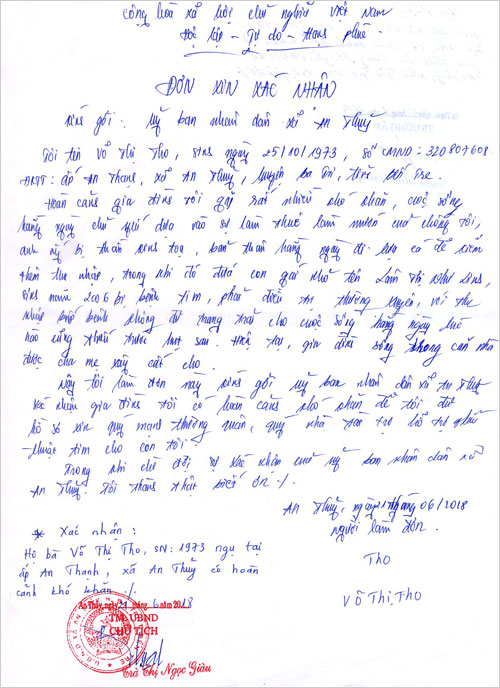 Cộng hòa xã hội chủ nghĩa Việt Nam
Độc lập - Tự do - Hạnh phúc
ĐƠN XIN XÁC NHẬN
Kính gởi: Uỷ ban nhân dân xã An Thuỷ
Tôi tên Võ Thị Tho, sinh ngày 25/10/1973, số CMND: 320807608
HKTT: ấp An Thạnh, xã An Thuỷ, huyện Ba Tri, tỉnh Bến Tre
Hoàn cảnh gia đình tôi gặp rất nhiều khó khăn, cuộc sống
hằng ngày chủ yếu dựa vào sự làm thuê làm mướn của chồng tôi,
anh bị thần kinh tọa, bản thân hàng ngày đi lựa cá để kiếm
thêm thu nhập, trong khi đó đứa con gái nhỏ tên Lâm Thị Như
sinh năm 2006 bị bệnh tim, phải điều trị thường xuyên, với thu
nhập không đủ trang trải cho cuộc sống hằng ngày lúc
nào cũng thiếu trước hụt sau. Hiện tại, gia đình sống trong căn nhà
được cha mẹ xây cất cho.
Nay tôi làm đơn này kính gởi uỷ ban nhân dân xã An Thuỷ
xác nhận gia đình tôi có hoàn cảnh khó khăn để tôi
hồ sơ xin quý mạnh thường quân, quý nhà tài trợ hỗ trợ phẩu
thuật tim cho con tôi.
Trong khi chờ đợi sự xác nhận của uỷ ban nhân dân xã
An Thuỷ. Tôi thành thật biết ơn./.
An Thuỷ, ngày 21 tháng 06/2018
Người làm đơn.
Tho
Võ Thị Tho
* Xác nhận:
Hộ bà Võ Thị Tho, SN: 1973 ngụ tại
ấp An Thạnh, xã An Thuỷ có hoàn
cảnh khó khăn./.
An Thủy, ngày 21 tháng 6 năm 2018
TM. UBND
CHỦ TỊCH
Trà Thị Ngọc Giàu